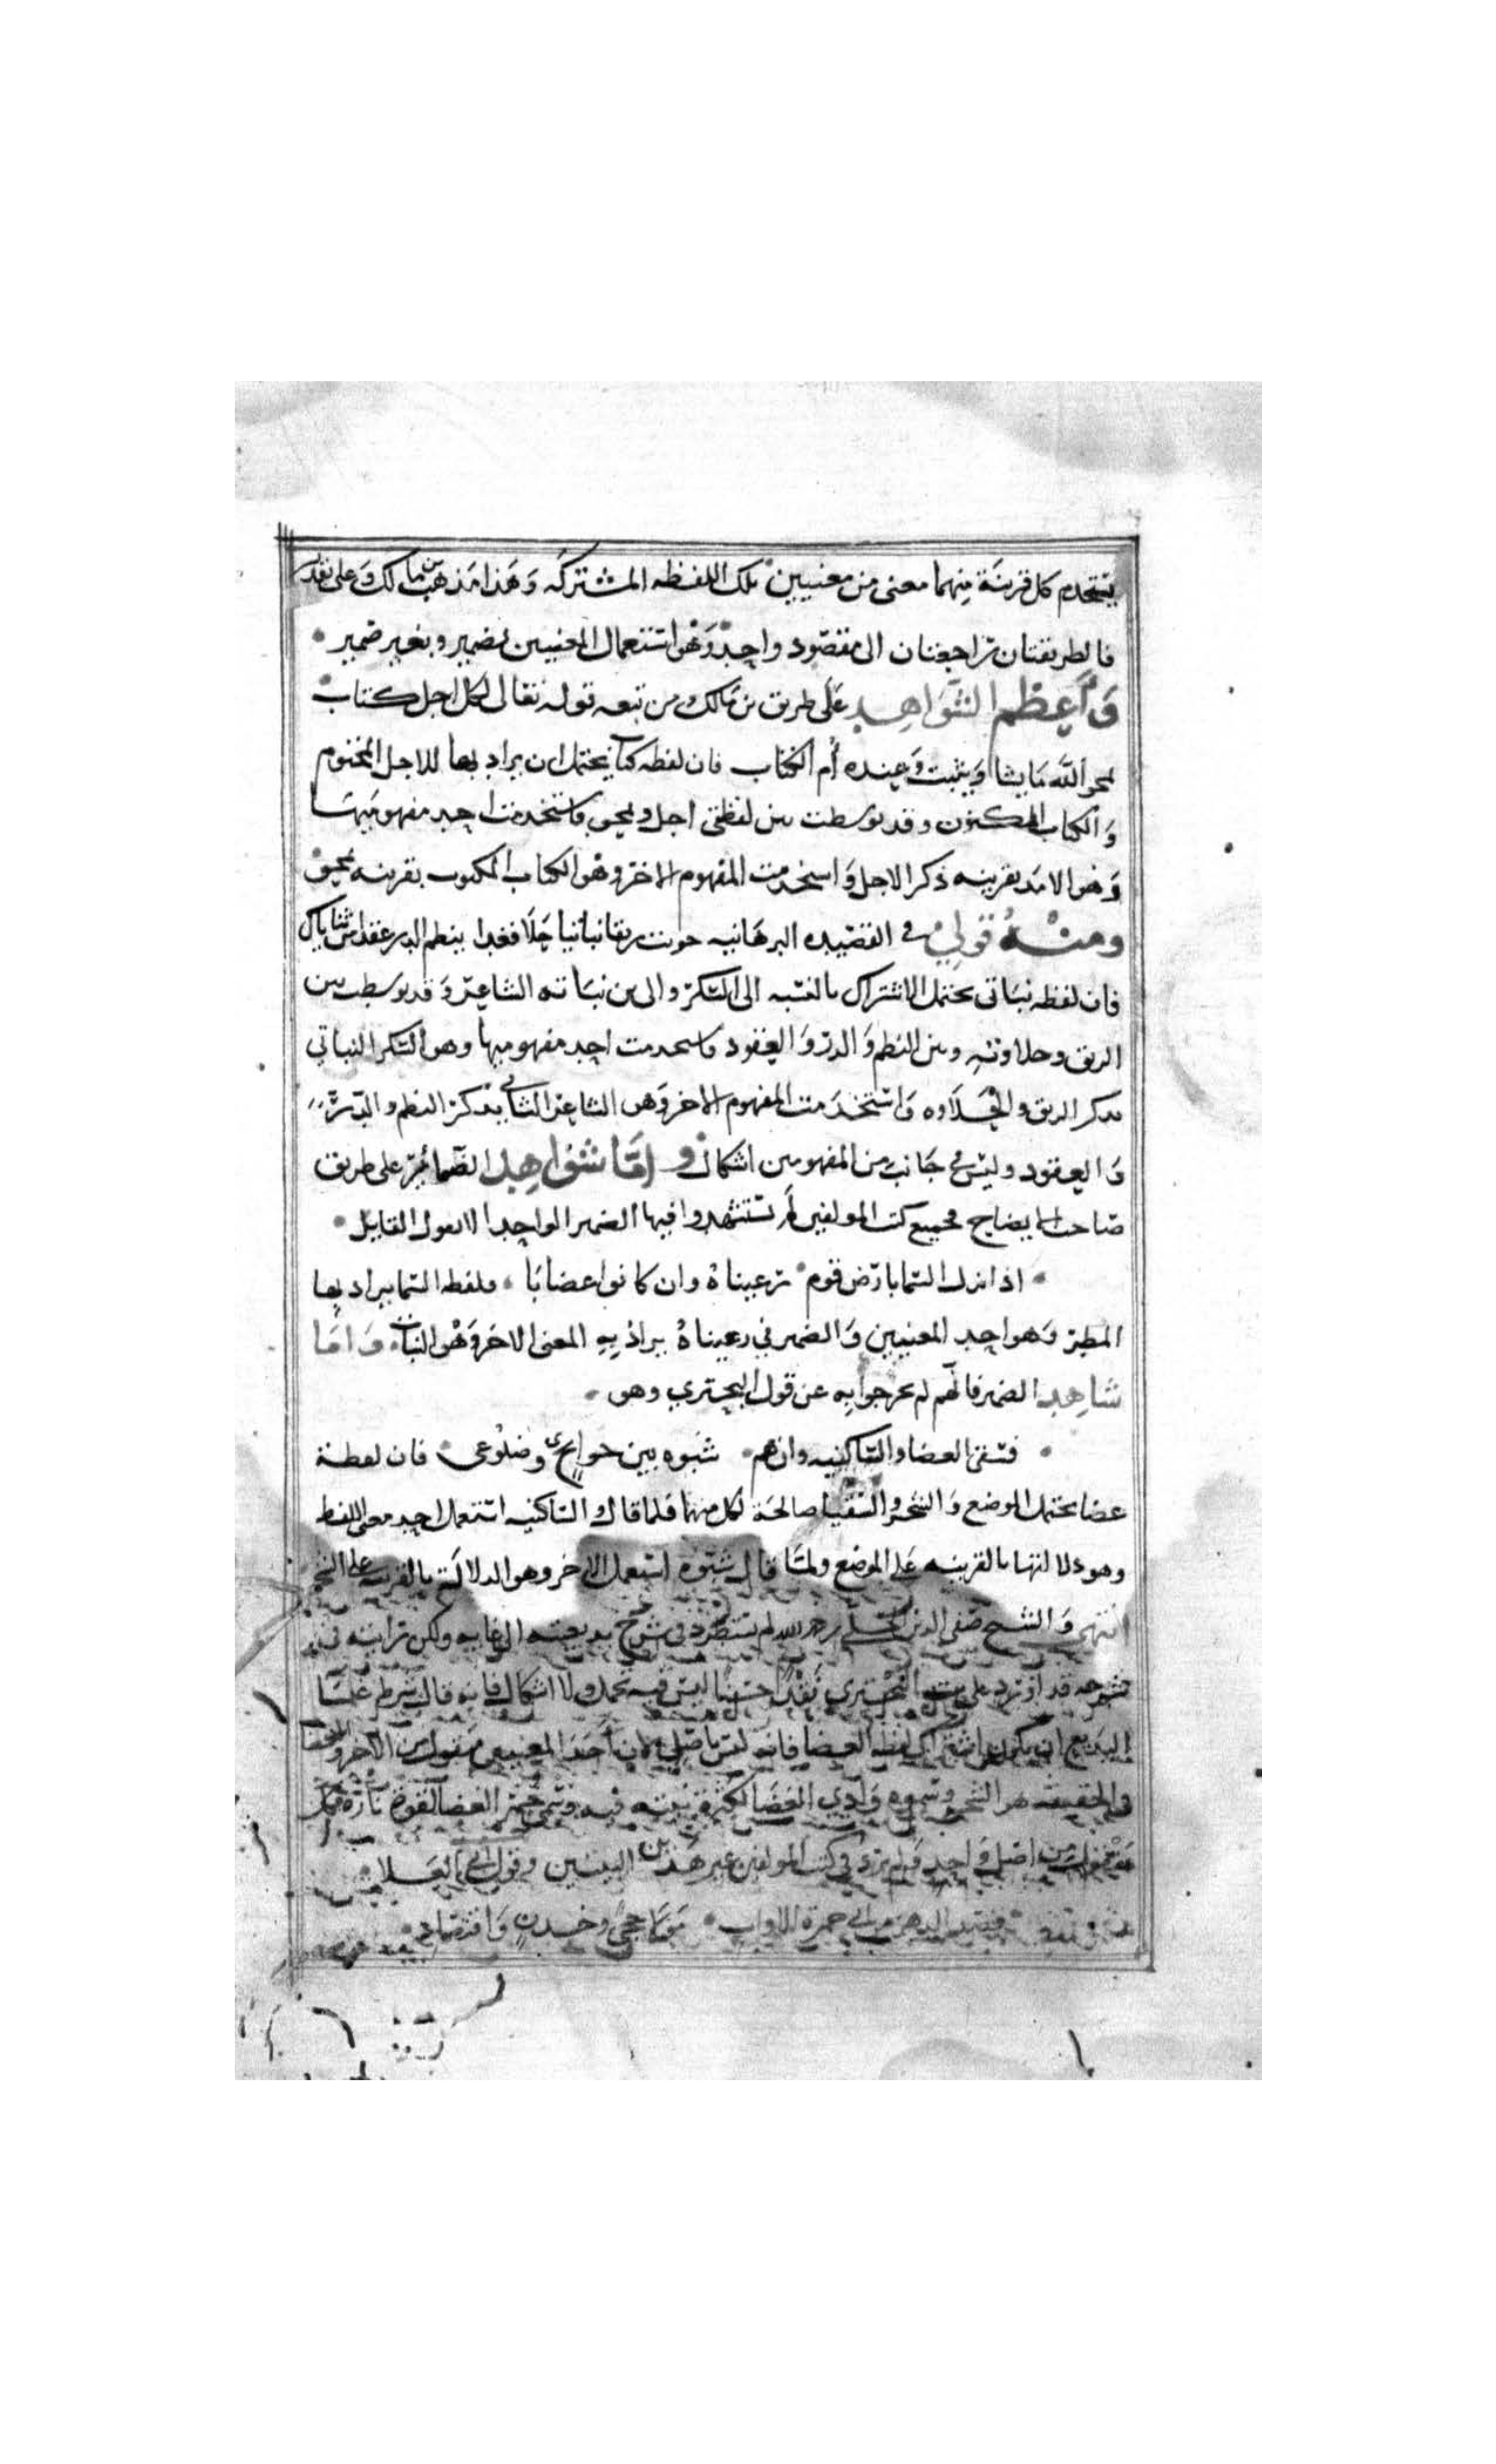 يستخدم كل قرينة منهما معنى من معنيين تلك اللفظه المشتركه وهذا مذهب بن مالك وعلى
فالطريقتان تراجعتان الى مقصود واحد وهو استعمال المعنيين بضمير وبغير ضمير
واعظم الشواهد على طريق بن مالك ومن تبعه قوله تعالى لكل اجل كتاب
يمحو الله ما يشا ويثبت وعنده أم الكتاب فان لفظه كتاب يحتمل ان يراد بها الاجل المختوم
والكتاب المكنون وقد توسطت بين لفظتي اجل ويمحو فاستخدمت احد مفهوميها
وهو الامد بقرينه ذكر الاجل واستخدمت المفهوم الاخر وهو الكتاب المكتوب بقرينه يمحو
ومنه قولي في القصيده البرهانيه حويت ريقا نباتيا حلا فغدا ينظم الدر عقدا من ثناياك
فان لفظه نباتي يحتمل الاشتراك بالنسبه الى السكر والى بن نباته الشاعر وقد توسطت بين
الريق وحلاوته وبين النظم والدر والعقود فاستخدمت احد مفهوميها وهو السكر النباتي
بذكر الريق والحلاوه واستخدمت المفهوم الاخر وهو الشاعر النباتي بذكر النظم والدر
والعقود وليس في جانب من المفهومين اشكال واما شواهد الضمائر على طريق
صاحب الايضاح فجميع كتب المولفين لم يستشهدوا فيها الضمير الواحد الا بقول القايل
اذا نزل السما بارض قوم رعيناه وان كانوا غضابا فلفظه السما يراد بها
المطر وهو احد المعنيين والضمير في رعيناه يراد به المعنى الاخر وهو النبات واما
شاهد الضمير فانهم لم يخرجوا به عن قول البحتري وهو
فسقى الغضا والساكنيه وان هم شبوه بين جوانحي وضلوعي فان لفظة
غضا يحتمل الموضع والشجر والسقيا صالحة لكل منهما فلما قال والساكنيه استعمل احد معنى اللفظ
وهو دلالتها بالقرينه على الموضع ولما قال شبوه استعمل الاخر وهو الدلالة بالقرينه على الشجر
انتهى والشيخ صفي الدين الحلي رحمه الله لم يستطرد في شرح بديعيته الى غايه ولكن رايته في
شرحه قد اورد على بيت البحتري نقدا حسنا ليس فيه تحمل ولا اشكال فانه قال شرط علما
البديع ان يكون اشتراك لفظه الغضا فانه ليس باصلي لان أحد المعنيين منقول من الاخر والغضا
في الحقيقة هو الشجر وسموه وادي الغضا لكثرة نبته فيه وسمي جمر الغضا لقوة ناره فكل
منقول من اصل واحد ولم يرد في كتب المولفين غير هذين البيتين وقول ابي العلا
فقيه الدهر من ابي حمزة الاواب مولى حجى وخدن واقتصاد